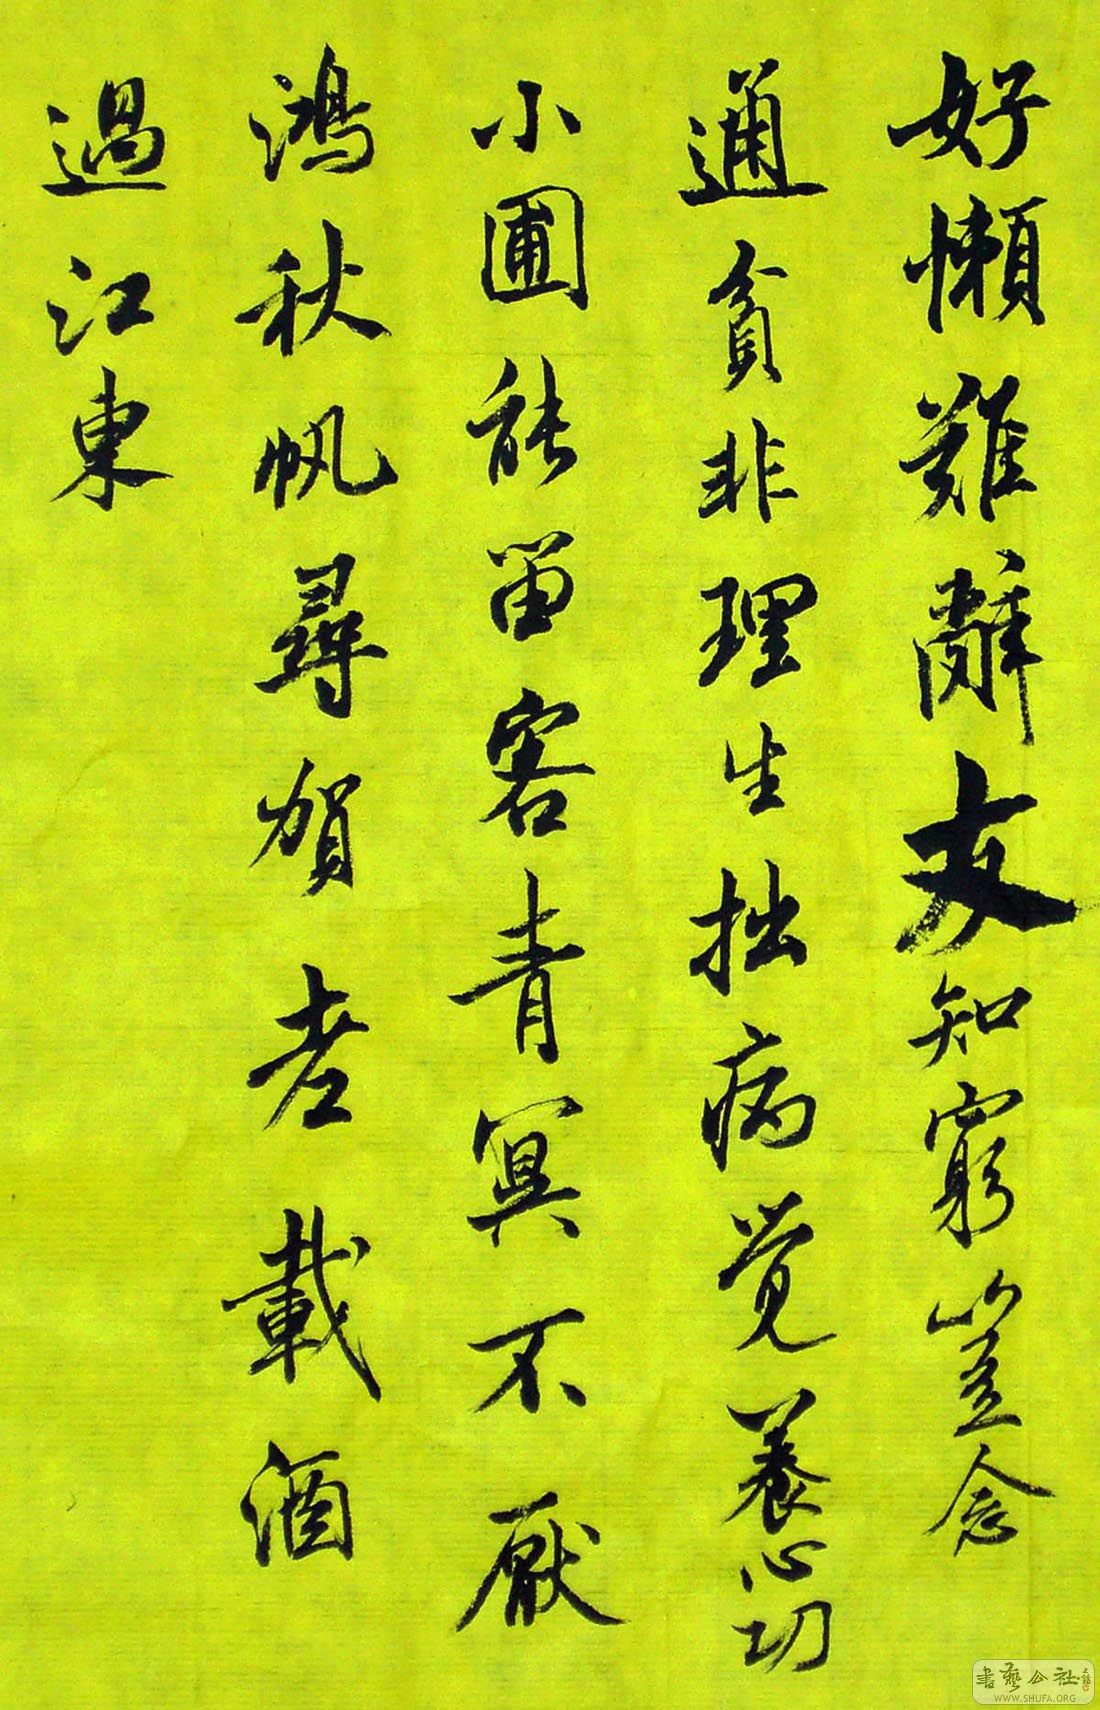 好懶難辭友知窮豈念
通貧非理生拙病覺養心功
小圃能留客青冥不厭
鴻秋帆尋賀老載酒
過江東
書藝公社
WWW.SHUFA.ORG